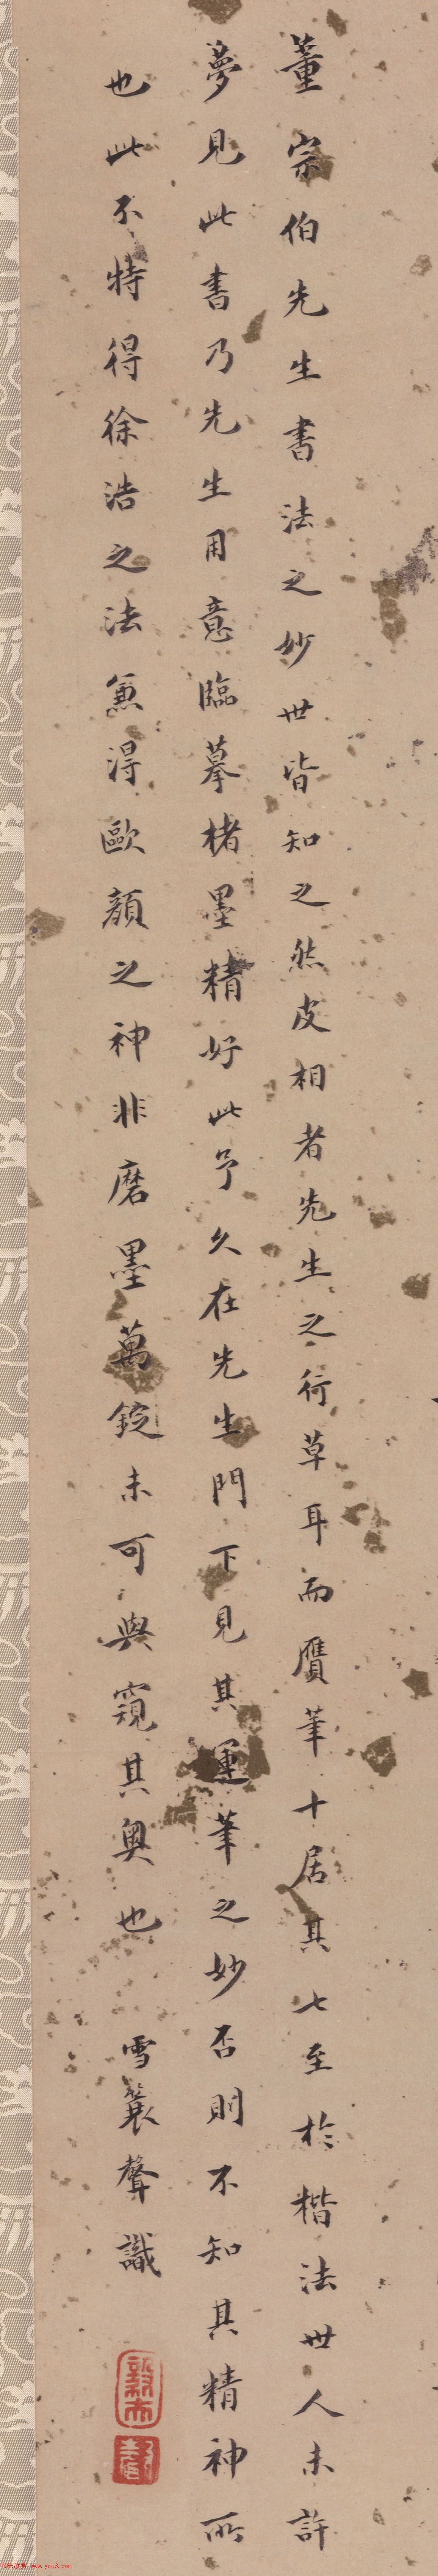 董宗伯先生書法之妙世皆知之然皮相者先生之行草耳而贋筆十居其七至於楷法世人未許
夢見此書乃先生用意臨摹楮墨精好此予久在先生門下見其運筆之妙否則不知其精神所
也此不特得徐浩之法兼得歐顏之神非磨墨萬錠未可與窺其奧也 雪蓑聲識
www.yac8.com